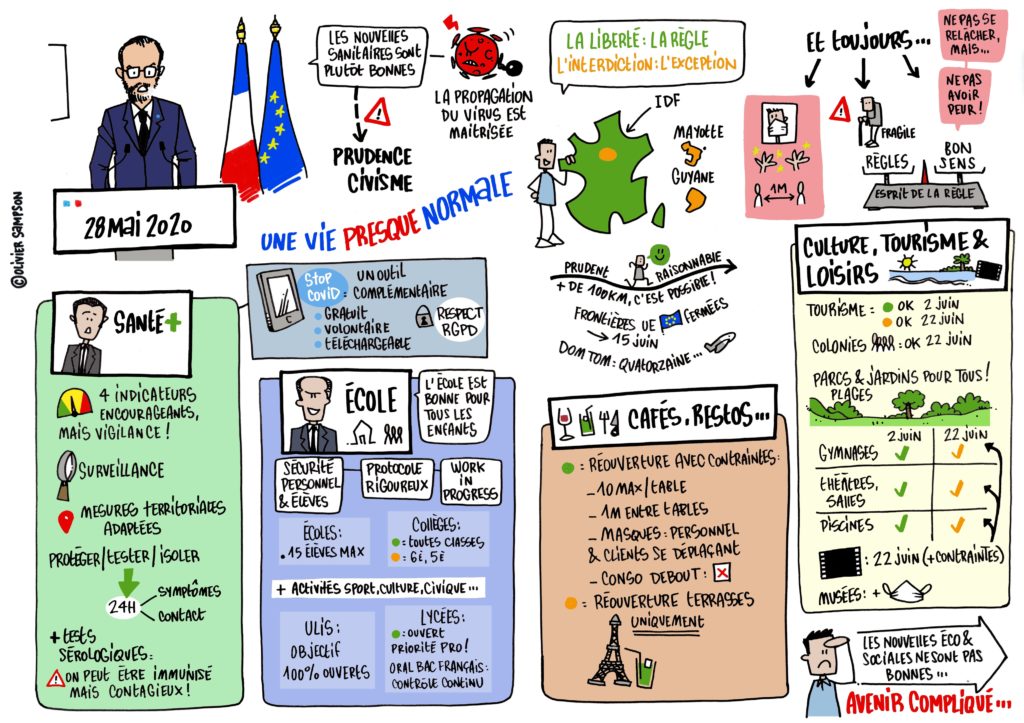 28 MAI 2020
©OLIVIER SAMPSON
LES NOUVELLES
SANITAIRES SONT
PLUTÔT BONNES
LA PROPAGATION
DU VIRUS EST
MAITRISÉE
PRUDENCE
CIVISME
UNE VIE PRESQUE NORMALE
LA LIBERTÉ : LA RÈGLE
L'INTERDICTION : L'EXCEPTION
IDF
MAYOTTE
GUYANE
PRUDENT
RAISONNABLE
+ DE 100KM, C'EST POSSIBLE !
FRONTIÈRES UE FERMÉES
→ 15 JUIN
DOM TOM : QUATORZAINE...
ET TOUJOURS...
NE PAS SE
RELÂCHER,
MAIS...
NE PAS
AVOIR
PEUR !
1M
FRAGILE
RÈGLES
BON
SENS
ESPRIT DE LA RÈGLE
SANTÉ+
4 INDICATEURS
ENCOURAGEANTS,
MAIS VIGILANCE !
SURVEILLANCE
MESURES TERRITORIALES
ADAPTÉES
PROTÉGER/TESTER/ISOLER
24H
SYMPTÔMES
CONTACT
+ TESTS
SÉROLOGIQUES :
ON PEUT ÊTRE IMMUNISÉ
MAIS CONTAGIEUX !
STOP
COVID :
UN OUTIL
COMPLÉMENTAIRE
GRATUIT
VOLONTAIRE
TÉLÉCHARGEABLE
RESPECT
RGPD
ÉCOLE
L'ÉCOLE EST
BONNE POUR
TOUS LES
ENFANTS
SÉCURITÉ
PERSONNEL
& ÉLÈVES
PROTOCOLE
RIGOUREUX
WORK
IN
PROGRESS
ÉCOLES :
. 15 ÉLÈVES MAX
COLLÈGES :
= TOUTES CLASSES
= 6È, 5È
+ ACTIVITÉS SPORT, CULTURE, CIVIQUE...
ULIS :
OBJECTIF
100% OUVERTS
LYCÉES :
= OUVERT
PRIORITÉ PRO !
ORAL BAC FRANÇAIS :
CONTRÔLE CONTINU
CAFÉS, RESTOS...
= RÉOUVERTURE AVEC CONTRAINTES :
_ 10 MAX/TABLE
_ 1M ENTRE TABLES
_ MASQUES : PERSONNEL
& CLIENTS SE DÉPLAÇANT
_ CONSO DEBOUT :
= RÉOUVERTURE TERRASSES
UNIQUEMENT
CULTURE, TOURISME &
LOISIRS
TOURISME = OK 2 JUIN
OK 22 JUIN
COLONIES : OK 22 JUIN
PARCS & JARDINS POUR TOUS !
PLAGES
2 JUIN
22 JUIN
GYMNASES
THÉÂTRES,
SALLES
PISCINES
: 22 JUIN (+ CONTRAINTES)
MUSÉES : +
LES NOUVELLES ÉCO &
SOCIALES NE SONT PAS
BONNES...
AVENIR COMPLIQUÉ...